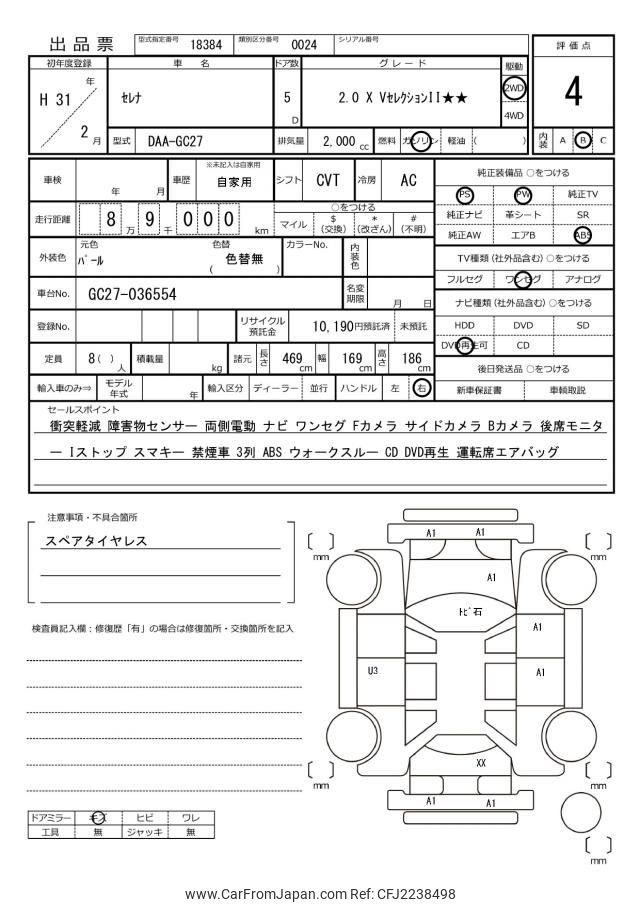 出品票 型式指定番号 18384 類別区分番号 0024 シリアル番号
評価点
4
内装 A B C
初年度登録 車名 ドア数 グレード 駆動
H 31 年 2 月
セレナ
5 D
2.0 X VセレクションII★★
2WD
4WD
型式 DAA-GC27 排気量 2,000 cc 燃料 ガソリン 軽油 ( )
車検 年 月 車歴 ※未記入は自家用 自家用 シフト CVT 冷房 AC
走行距離 8万 9千 0 0 0 km
○をつける
マイル $ (交換) * (改ざん) # (不明)
外装色 元色 パール 色替 ( 色替無 ) カラーNo. 内装色
車台No. GC27-036554 名変期限 月 日
登録No. リサイクル預託金 10,190円預託済 未預託
定員 8( )人 積載量 kg 諸元 長さ 469 cm 幅 169 cm 高さ 186 cm
輸入車のみ⇒ モデル年式 年 輸入区分 ディーラー 並行 ハンドル 左 右
純正装備品 ○をつける
PS PW 純正TV
純正ナビ 革シート SR
純正AW エアB ABS
TV種類(社外品含む)○をつける
フルセグ ワンセグ アナログ
ナビ種類(社外品含む)○をつける
HDD DVD SD
DVD再生可 CD
後日発送品 ○をつける
新車保証書 車輌取説
セールスポイント
衝突軽減 障害物センサー 両側電動 ナビ ワンセグ Fカメラ サイドカメラ Bカメラ 後席モニタ
ー Iストップ スマキー 禁煙車 3列 ABS ウォークスルー CD DVD再生 運転席エアバッグ
注意事項・不具合箇所
スペアタイヤレス
検査員記入欄:修復歴「有」の場合は修復箇所・交換箇所を記入
ドアミラー キズ ヒビ ワレ
工具 無 ジャッキ 無
A1 A1
mm mm
A1
トビ石
A1
U3 A1
XX
mm mm
A1 A1
mm
www.CarFromJapan.com Ref: CFJ2238498